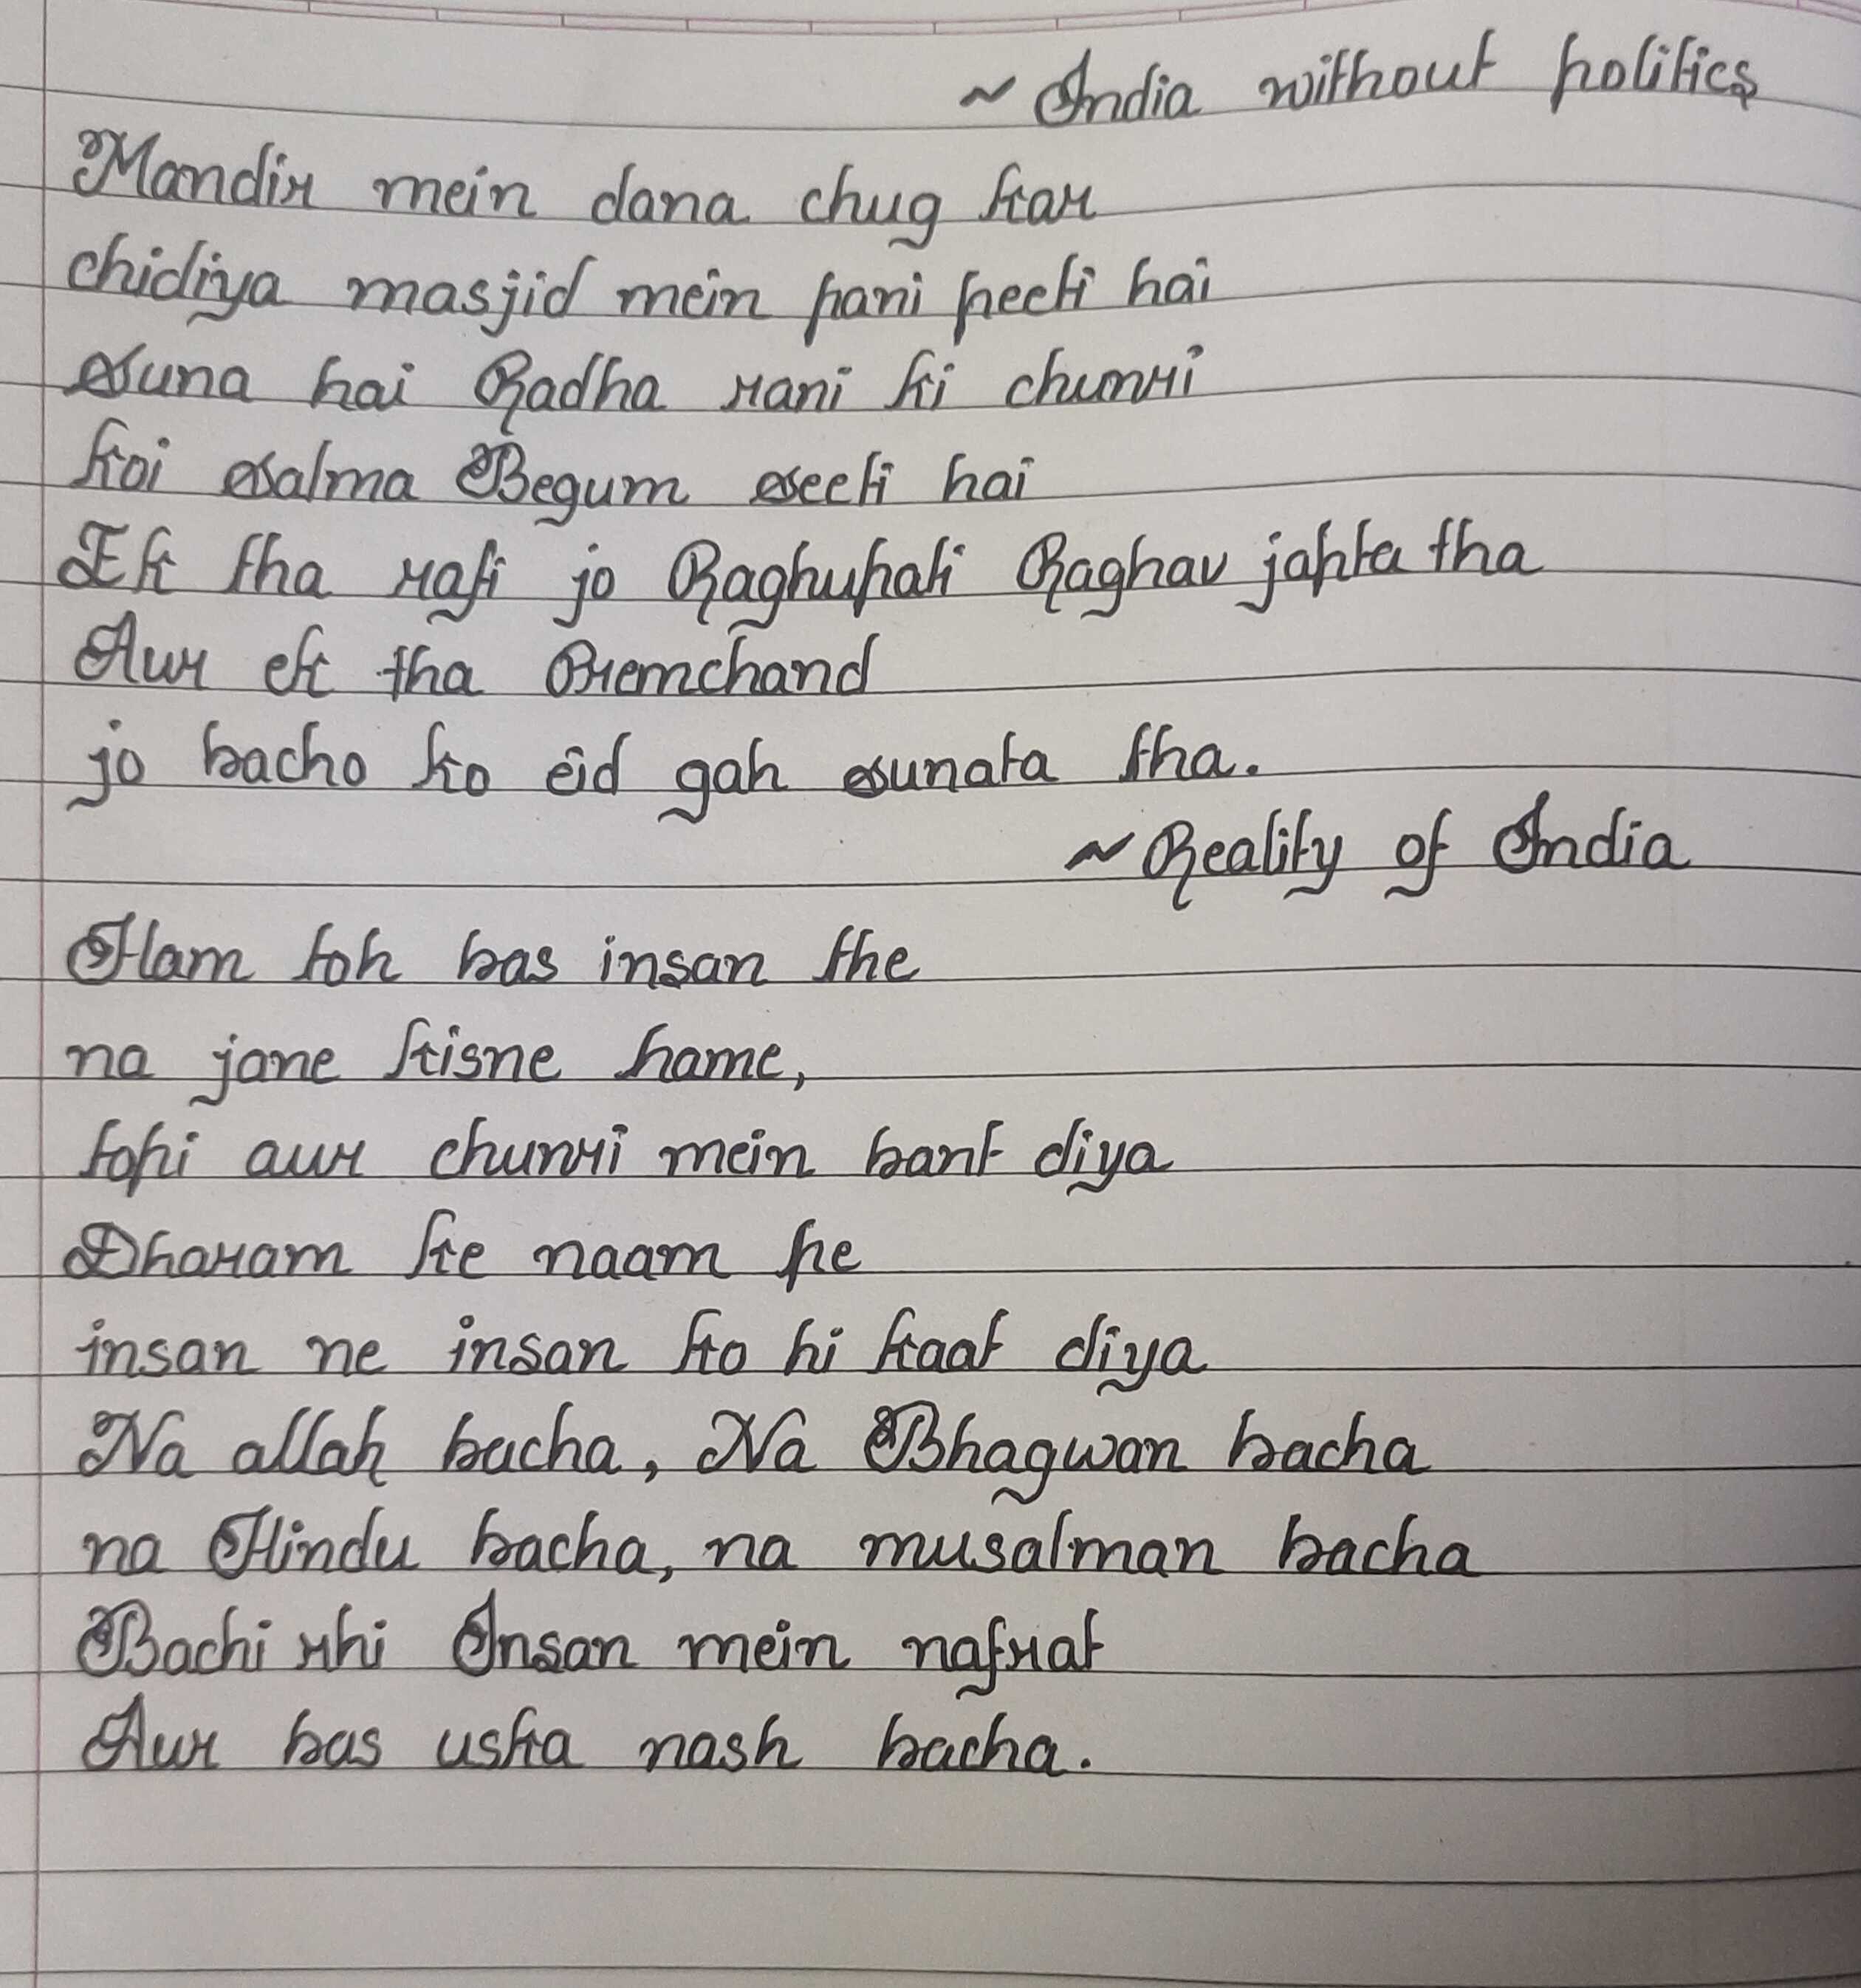 ~ India without politics
Mandir mein dana chug kar
chidiya masjid mein pani peeti hai
suna hai Radha rani ki chunri
koi salma Begum seeti hai
Ek tha rafi jo Raghupati Raghav japta tha
Aur ek tha Premchand
jo bacho ko eid gah sunata tha.
~ Reality of India
Ham toh bas insan the
na jane kisne hame,
topi aur chunri mein bant diya
Dharam ke naam pe
insan ne insan ko hi kaat diya
Na allah bacha, Na Bhagwan bacha
na Hindu bacha, na musalman bacha
Bachi rhi Insan mein nafrat
Aur bas uska nash bacha.